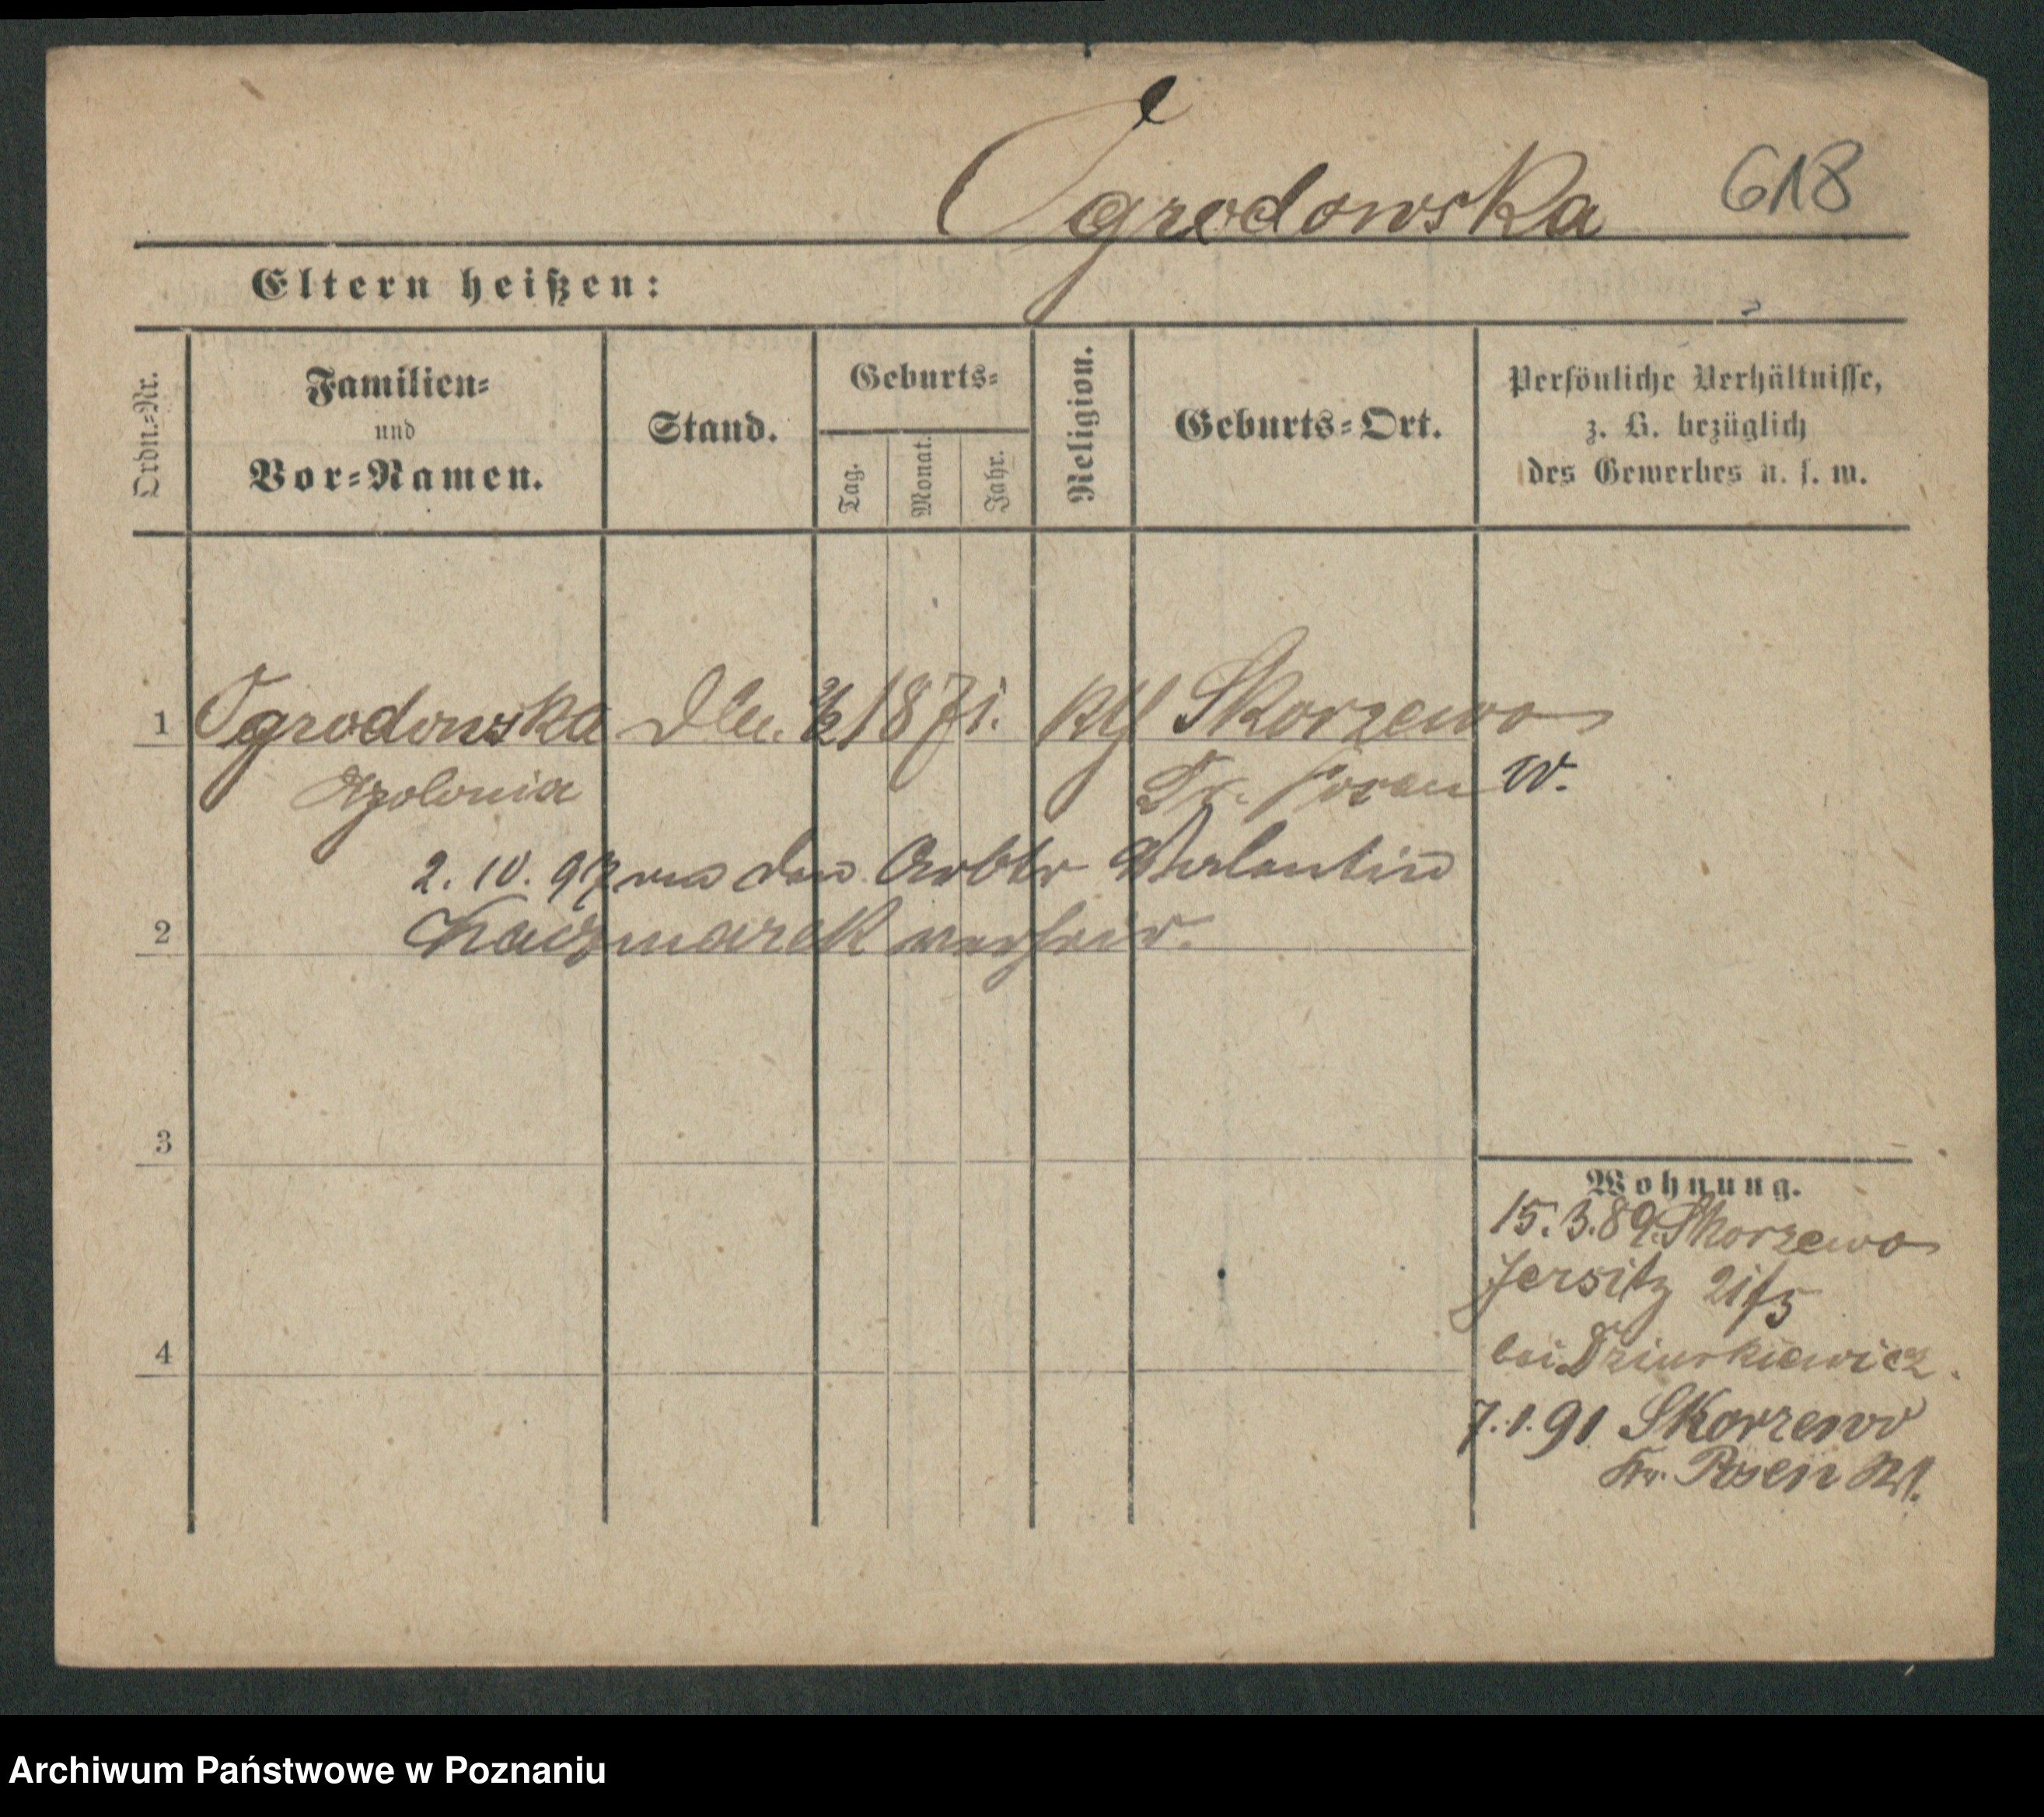 Ogrodowska 618
Eltern heißen:
Ordn.-Nr.
Familien-
und
Vor-Namen.
Stand.
Geburts-
Tag.
Monat.
Jahr.
Religion.
Geburts-Ort.
Persönliche Verhältnisse,
z. B. bezüglich
des Gewerbes u. s. w.
1 Ogrodowska 1871. Skorzewo
Apolonia Kr. Posen W.
2. 10. 97 den Arbtr Valentin
2 Kaczmarek verheir.
3
Wohnung.
15.3.89. Skorzewo
Jersitz 21/5
4 bei Dziurkiewicz.
7.1.91 Skorzewo
Kr. Posen W.
Archiwum Państwowe w Poznaniu